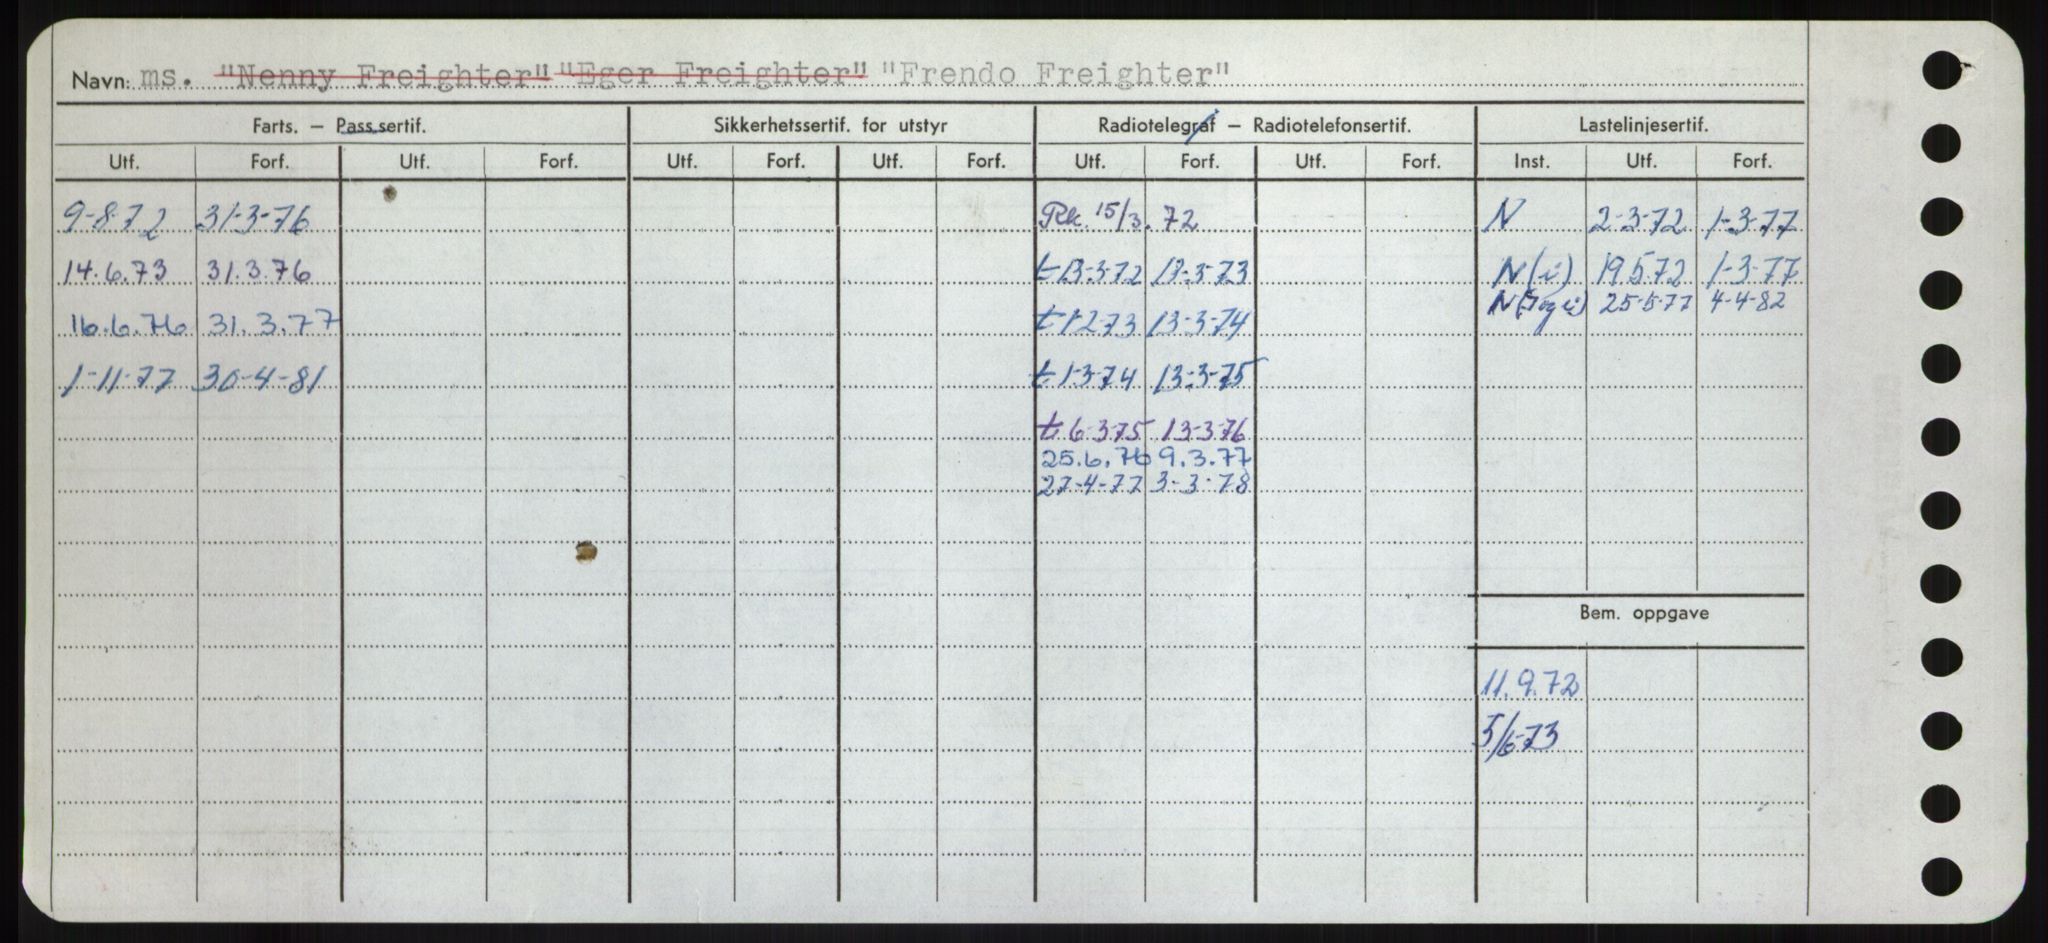 Navn: ms. "Nenny Freighter" "Eger Freighter" "Frendo Freighter"
Farts. – Pass.sertif. Sikkerhetssertif. for utstyr Radiotelegraf – Radiotelefonsertif. Lastelinjesertif.
Utf. Forf. Utf. Forf. Utf. Forf. Utf. Forf. Utf. Forf. Utf. Forf. Inst. Utf. Forf.
9-8-72 31-3-76 Rk. 15/3. 72 N 2-3-72 1-3-77
14.6.73 31.3.76 t 13-3-72 13-3-73 N(i) 19.5.72 1-3-77
N 25-5-77 4-4-82
16.6.76 31.3.77 t 1-2-73 13-3-74
1-11-77 30-4-81 t 1-3-74 13-3-75
t 6-3-75 13-3-76
25.6.76 9.3.77
27-4-77 3-3-78
Bem. oppgave
11.9.72
5/6-73